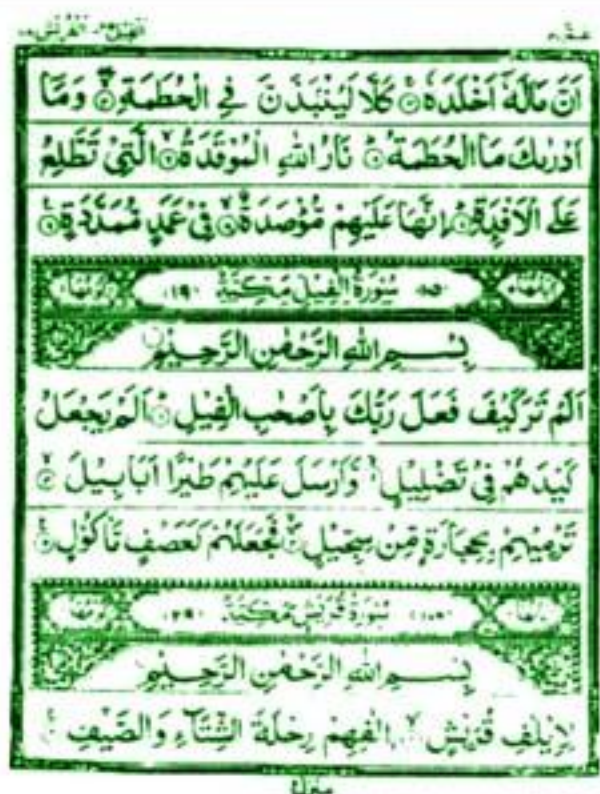 الفيل ١٠٥ القريش ١٠٦
عمّ ٣٠
اَنَّ مَالَهٗۤ اَخْلَدَهٗ ۚ۝ كَلَّا لَيُنْۢبَذَنَّ فِي الْحُطَمَةِ ۖ۝ وَمَاۤ
اَدْرٰىكَ مَا الْحُطَمَةُ ؕ۝ نَارُ اللّٰهِ الْمُوْقَدَةُ ۙ۝ الَّتِيْ تَطَّلِعُ
عَلَى الْاَفْـِٕدَةِ ؕ۝ اِنَّهَا عَلَيْهِمْ مُّؤْصَدَةٌ ۙ۝ فِيْ عَمَدٍ مُّمَدَّدَةٍ ۝
سُوْرَةُ الْفِيْلِ مَكِّيَّةٌ
بِسْمِ اللّٰهِ الرَّحْمٰنِ الرَّحِيْمِ
اَلَمْ تَرَ كَيْفَ فَعَلَ رَبُّكَ بِاَصْحٰبِ الْفِيْلِ ؕ۝ اَلَمْ يَجْعَلْ
كَيْدَهُمْ فِيْ تَضْلِيْلٍ ۙ۝ وَّاَرْسَلَ عَلَيْهِمْ طَيْرًا اَبَابِيْلَ ۙ۝
تَرْمِيْهِمْ بِحِجَارَةٍ مِّنْ سِجِّيْلٍ ۪ۙ۝ فَجَعَلَهُمْ كَعَصْفٍ مَّاْكُوْلٍ ۝
سُوْرَةُ قُرَيْشٍ مَكِّيَّةٌ
بِسْمِ اللّٰهِ الرَّحْمٰنِ الرَّحِيْمِ
لِاِيْلٰفِ قُرَيْشٍ ۙ۝ اٖلٰفِهِمْ رِحْلَةَ الشِّتَآءِ وَالصَّيْفِ ۚ۝
منزل